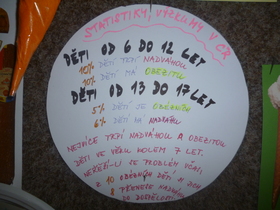 STATISTIKY, VÝZKUMY V ČR
DĚTI OD 6 DO 12 LET
10% DĚTÍ TRPÍ NADVÁHOU
10% DĚTÍ MÁ OBEZITU
DĚTI OD 13 DO 17 LET
5% DĚTÍ JE OBÉZNÍCH
6% DĚTÍ MÁ NADVÁHU
NEJVÍCE TRPÍ NADVÁHOU A OBEZITOU
DĚTI VE VĚKU KOLEM 7 LET.
NEŘEŠÍ-LI SE PROBLÉM VČAS,
Z 10 OBÉZNÍCH DĚTÍ SI
8 PŘENESE NADVÁHU
DO DOSPĚLOSTI